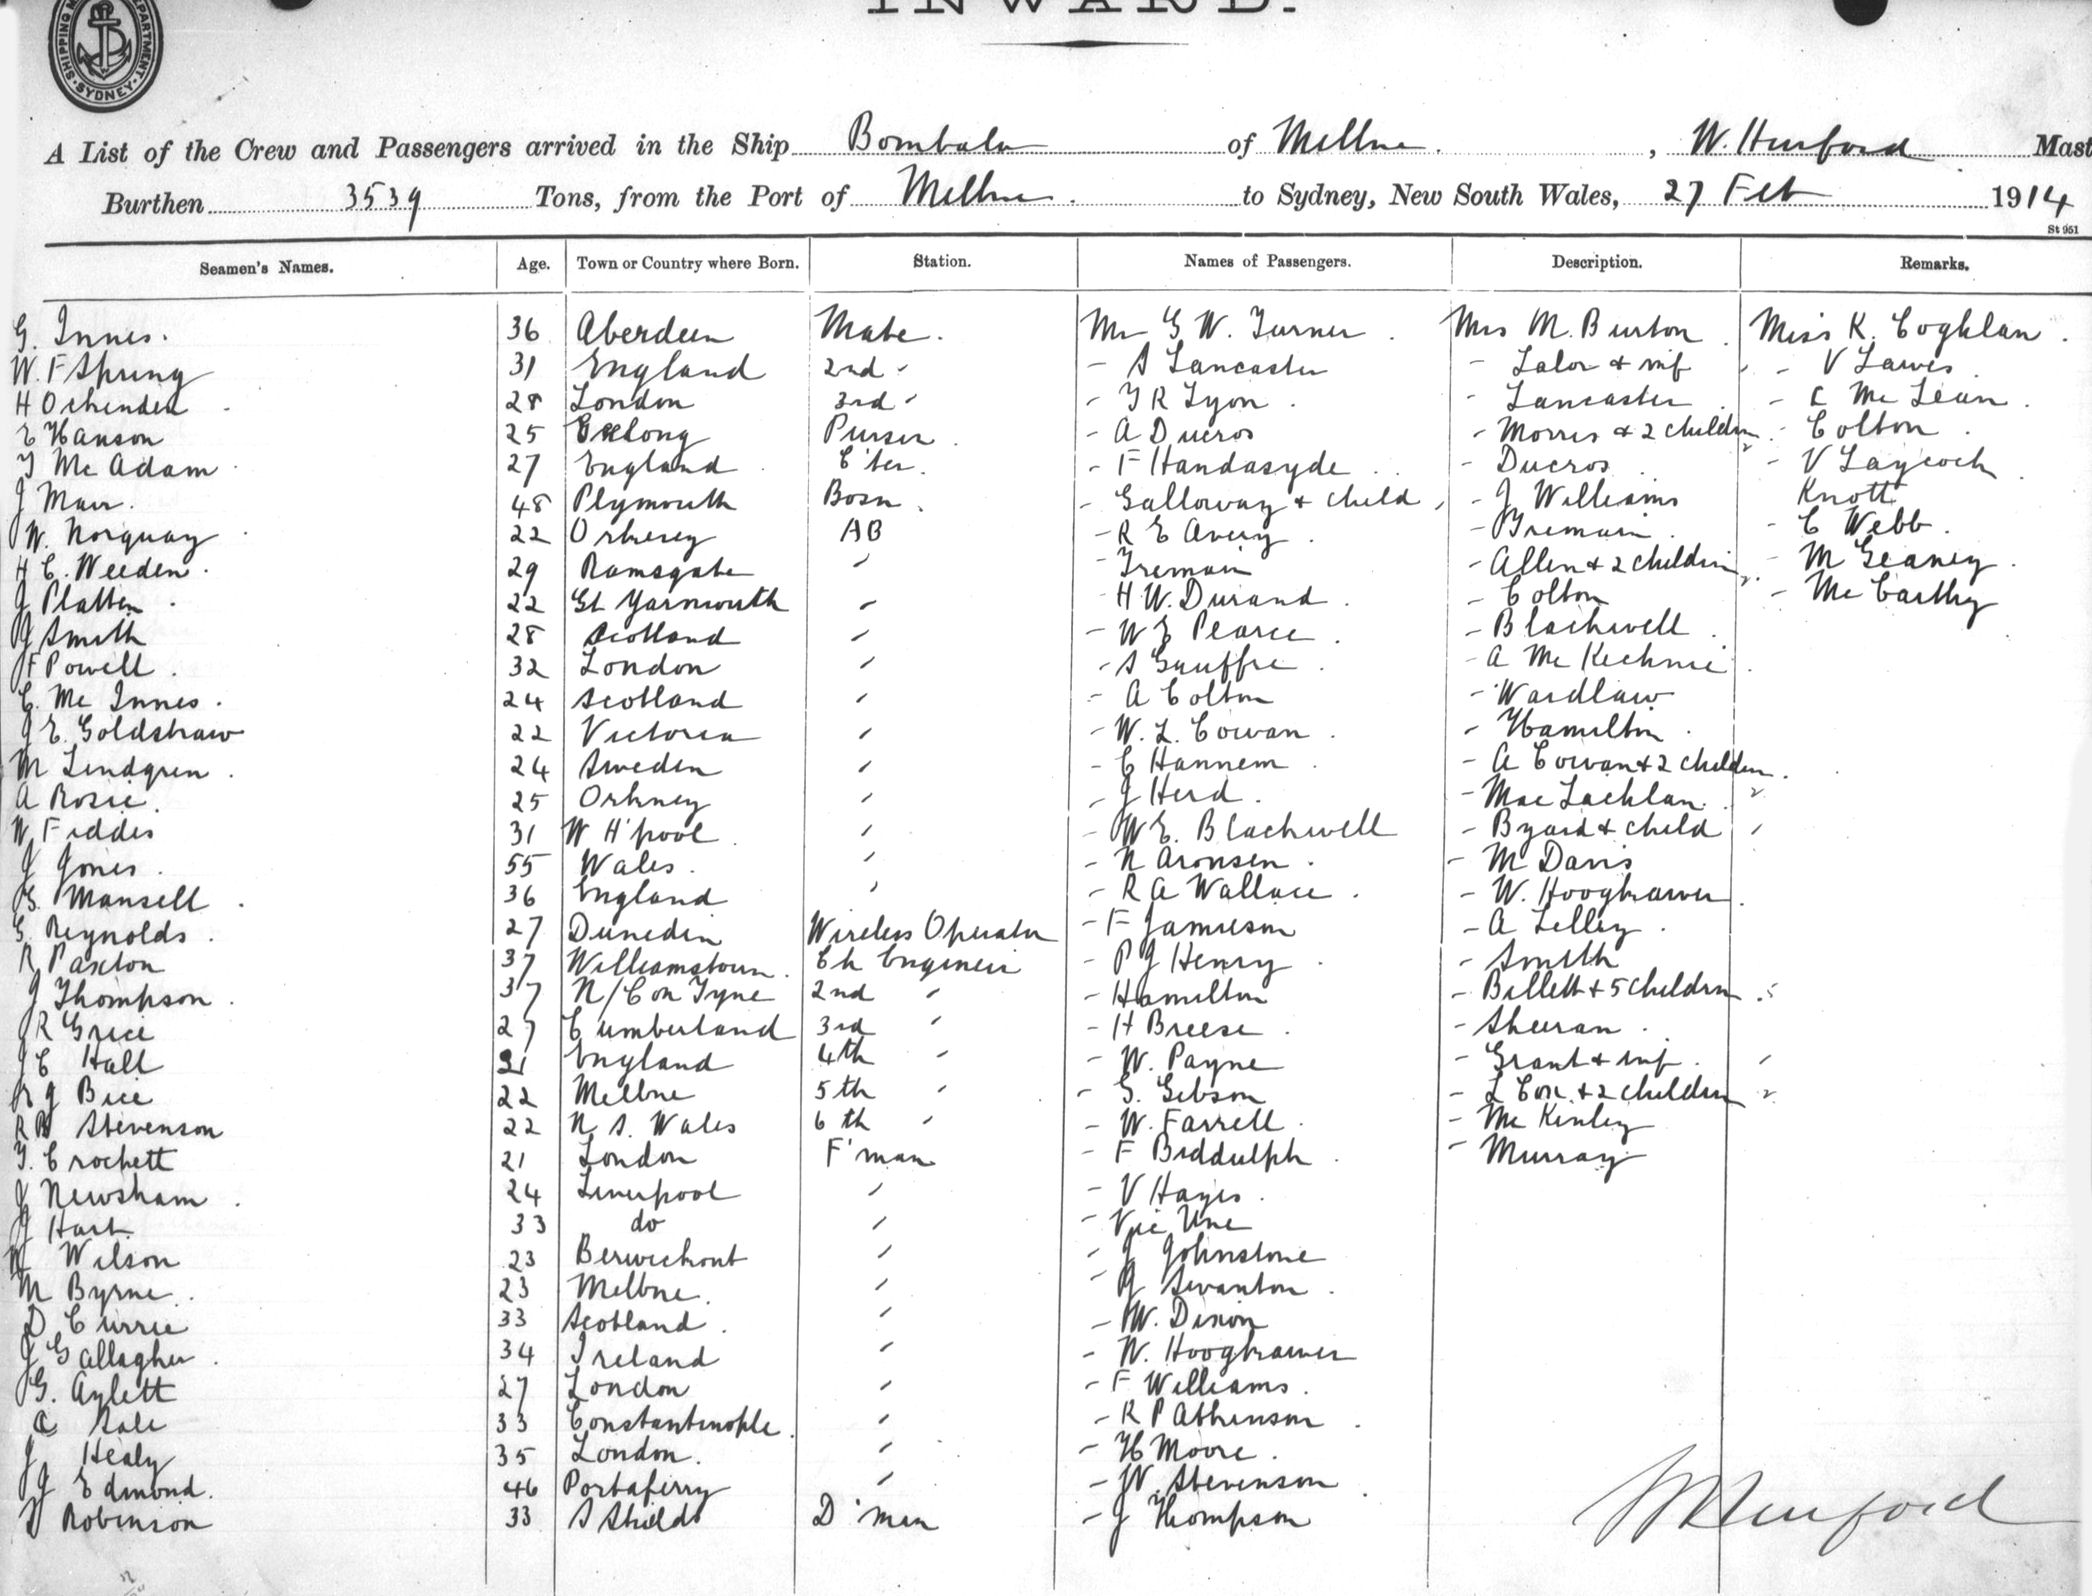 INWARD.
SHIPPING DEPARTMENT SYDNEY
A List of the Crew and Passengers arrived in the Ship Bombala of Mellne. , W. Hurford Mast
Burthen 3539 Tons, from the Port of Mellne. to Sydney, New South Wales, 27 Feb 1914
St 951
Seamen's Names. Age. Town or Country where Born. Station. Names of Passengers. Description. Remarks.
G. Innes. 36 Aberdeen Mate. Mr G W. Turner. Mrs M. Burton. Miss K. Coghlan.
W. F Spring 31 England 2nd " - S Lancaster - Lalor & inf ' - V Lawes.
H Ochenden 28 London 3rd " - T R Lyon. - Lancaster - C Mc Lean.
E Hanson 25 Geelong Purser. - A Ducros - Morris & 2 children 2 - Colton.
T Mc Adam 27 England C'ter. - F Handasyde. - Ducros. - V Laycock
J Mair. 48 Plymouth Bosn. - Galloway & child, - J Williams Knott
W. Norquay 22 Orkney AB - R E Avery. - Tremain. - C Webb.
H C. Weeden. 29 Ramsgate " - Tremain - Allen & 2 children 2. - M Geaney.
J Platten. 22 Gt Yarmouth " - H W. Durand. - Colton - Mc Carthy
J Smith 28 Scotland " - W E Pearce. - Blackwell.
F Powell. 32 London " - S Gauffre. - A Mc Kechnie.
C. Mc Innes. 24 Scotland " - A Colton - Wardlaw
J E. Goldstraw 22 Victoria " - W. L. Cowan. - Hamilton.
M Lindgren. 24 Sweden " - C Hannem. - A Cowan & 2 children.
A Rosie. 25 Orkney " - J Herd. - Mac Lachlan. 2
W Fiddis 31 W H'pool " - W E. Blackwell - Byard & child '
J Jones. 55 Wales. " - N Aronsen. - M Davis
G. Mansell. 36 England " - R A Wallace. - W. Hooghrawer.
G. Reynolds. 27 Dunedin Wireless Operator - F Jamieson - A Lelley.
R Paxton 37 Williamstown. Ch Engineer - P J Henry. - Smith
J Thompson. 37 N/C on Tyne 2nd " - Hamilton - Billett & 5 children. 5
R Grice 27 Cumberland 3rd " - H Breese. - Sheeran.
J C Hall 21 England 4th " - W. Payne - Grant & inf. '
R J Bice 22 Melbne 5th " - G. Gibson - L Cox & 2 children 2
R B Stevenson 22 N S. Wales 6th " - W. Farrell. - Mc Kinley
T. Crockett 21 London F'man - F Biddulph. - Murray
J Newsham. 24 Liverpool " - V Hayes.
J Hart 33 do " - Vic Une
Wilson 23 Berwickont " - J Johnstone
M Byrne. 23 Melbne. " - J Swanton.
D Currie 33 Scotland. " - W. Dixon
J Gallagher. 34 Ireland " - W. Hooghrawer
G. Aylett 27 London " - F Williams.
C Sale 33 Constantinople. " - R P Atkinson.
J Healy 35 London. " - H Moore.
J Edmond. 46 Portaferry " - W. Stevenson.
Robinson 33 S Shields D'man - J Thompson
W Hurford